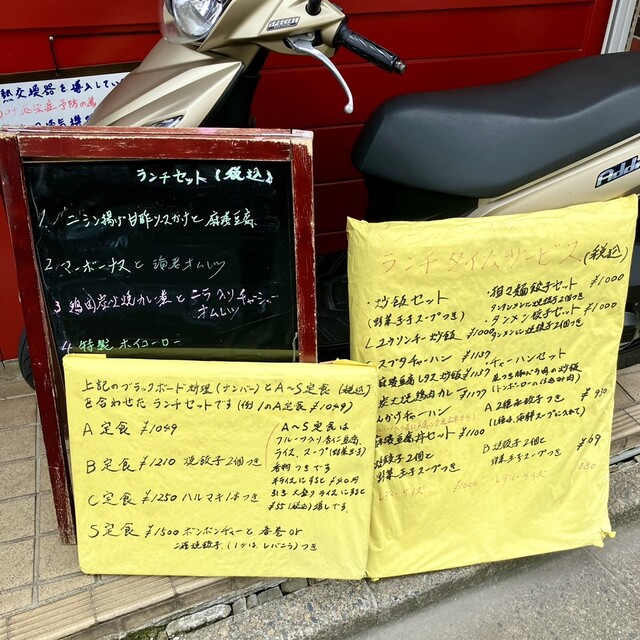 熱交換器を導入してい
ランチセット（税込）
1. ニシン揚げ甘酢ソースかけと 麻婆豆腐
2. マーボーナスと 海老オムレツ
3. 鶏肉炭火焼カレー煮と ニラ入りチャーシュー
オムレツ
4. 特製 ホイコーロー
上記のブラックボード料理（ナンバー）とA〜S定食（税込）
を合わせた ランチセットです（例 1のA定食 ¥1049）
A 定食 ¥1049
B 定食 ¥1210 焼餃子2個つき
C 定食 ¥1250 ハルマキ1本つき
S 定食 ¥1500 バンバンヂーと 春巻 or
A〜S定食は
フルーツ入り杏仁豆腐
ライス、スープ（野菜玉子）
香物つきです
半ライスにすると ¥20円
引き 大盛りライスにすると
¥55（税込）増しです
ランチタイムサービス（税込）
・炒飯セット
（野菜玉子スープつき）
¥1000
スブタチャーハン ¥1137
麻婆豆腐レタス炒飯 ¥1137
炭火焼鶏肉カレー ¥1137
チャーハン
麻婆豆腐丼セット ¥1100
焼餃子2個と
野菜玉子スープつき
レディーサイズ ¥1020
・担々麺餃子セット ¥1000
タンタンメンに焼餃子2個つき
・タンメン餃子セット ¥1000
タンメンに焼餃子2個つき
・チャーハンセット
A 2種水餃子つき ¥910
B 焼餃子2個と
野菜玉子スープつき
レディーサイズ
Addre